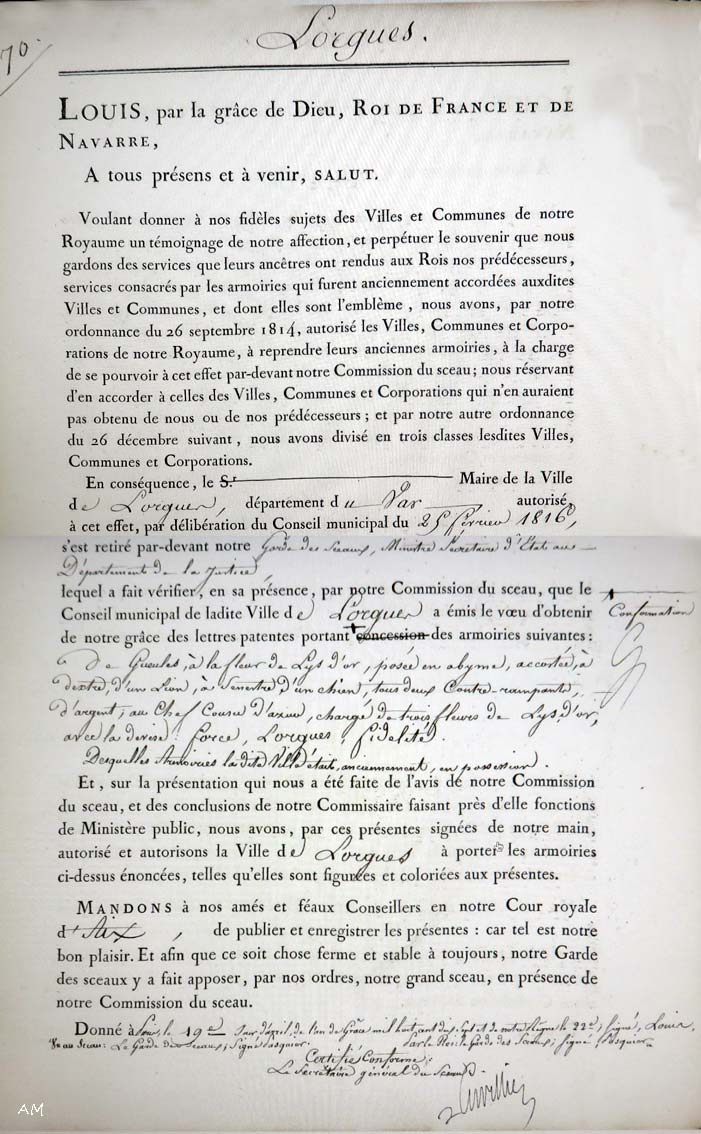 70.
Lorgues.
LOUIS, par la grâce de Dieu, ROI DE FRANCE ET DE
NAVARRE,
A tous présens et à venir, SALUT.
Voulant donner à nos fidèles sujets des Villes et Communes de notre
Royaume un témoignage de notre affection, et perpétuer le souvenir que nous
gardons des services que leurs ancêtres ont rendus aux Rois nos prédécesseurs,
services consacrés par les armoiries qui furent anciennement accordées auxdites
Villes et Communes, et dont elles sont l'emblème, nous avons, par notre
ordonnance du 26 septembre 1814, autorisé les Villes, Communes et Corpo-
rations de notre Royaume, à reprendre leurs anciennes armoiries, à la charge
de se pourvoir à cet effet par-devant notre Commission du sceau; nous réservant
d'en accorder à celles des Villes, Communes et Corporations qui n'en auraient
pas obtenu de nous ou de nos prédécesseurs; et par notre autre ordonnance
du 26 décembre suivant, nous avons divisé en trois classes lesdites Villes,
Communes et Corporations.
En conséquence, le S.r Maire de la Ville
de Lorgues, département du Var autorisé,
à cet effet, par délibération du Conseil municipal du 25 février 1816,
s'est retiré par-devant notre Garde des Sceaux, Ministre Secrétaire d'État au
Département de la Justice
lequel a fait vérifier, en sa présence, par notre Commission du sceau, que le
Conseil municipal de ladite Ville de Lorgues a émis le vœu d'obtenir
Confirmation
de notre grâce des lettres patentes portant + concession des armoiries suivantes:
De Gueules, à la fleur de Lys d'or, posée en abyme, accostée, à
dextre, d'un Lion, à Senestre d'un chien, tous deux Contre-rampants,
d'argent; au Chef Cousu d'azur, chargé de trois fleurs de Lys d'or,
avec la devise: force, Lorgues, fidelité.
Desquelles Armoiries la dite Ville était, anciennement, en possession.
Et, sur la présentation qui nous a été faite de l'avis de notre Commission
du sceau, et des conclusions de notre Commissaire faisant près d'elle fonctions
de Ministère public, nous avons, par ces présentes signées de notre main,
autorisé et autorisons la Ville de Lorgues à porter les armoiries
ci-dessus énoncées, telles qu'elles sont figurées et coloriées aux présentes.
MANDONS à nos amés et féaux Conseillers en notre Cour royale
d'Aix, de publier et enregistrer les présentes: car tel est notre
bon plaisir. Et afin que ce soit chose ferme et stable à toujours, notre Garde
des sceaux y a fait apposer, par nos ordres, notre grand sceau, en présence de
notre Commission du sceau.
Donné à Paris, le 19e Jour d'avril, de l'an de Grâce mil huit cent dix Sept et de notre Règne le 22e; Signé, Louis.
Vu au Sceau: Le Garde des Sceaux; Signé Pasquier. Par le Roi le Garde des Sceaux; Signé, Pasquier.
Certifié Conforme:
Le Secrétaire général du Sceau
AM